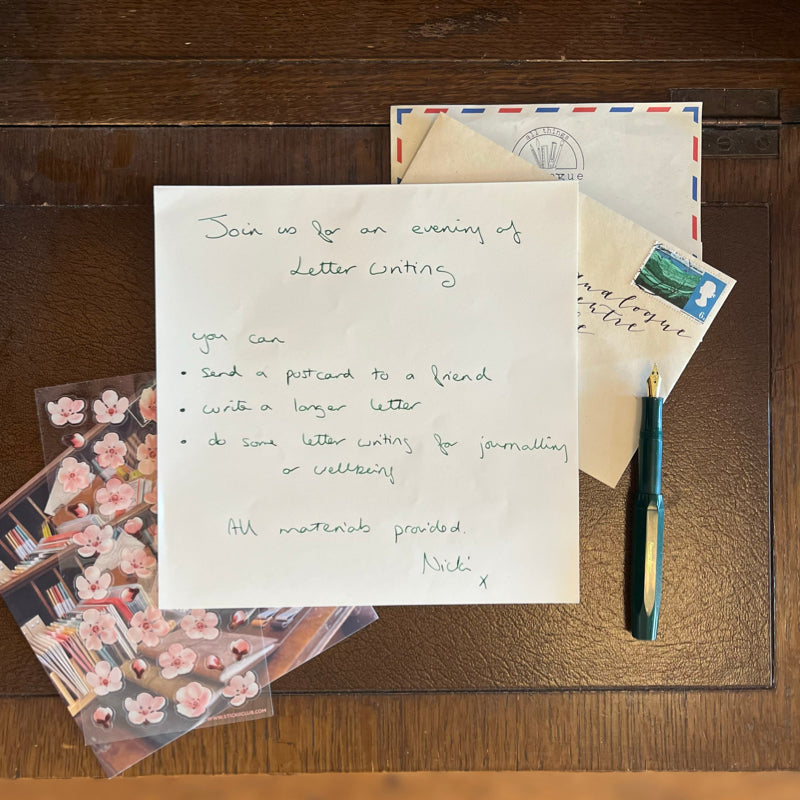 all things
Join us for an evening of
Letter writing
you can
• send a postcard to a friend
• write a longer letter
• do some letter writing for journalling
or wellbeing
All materials provided.
Nicki
x
analogue
WWW.STICKIICLUB.COM